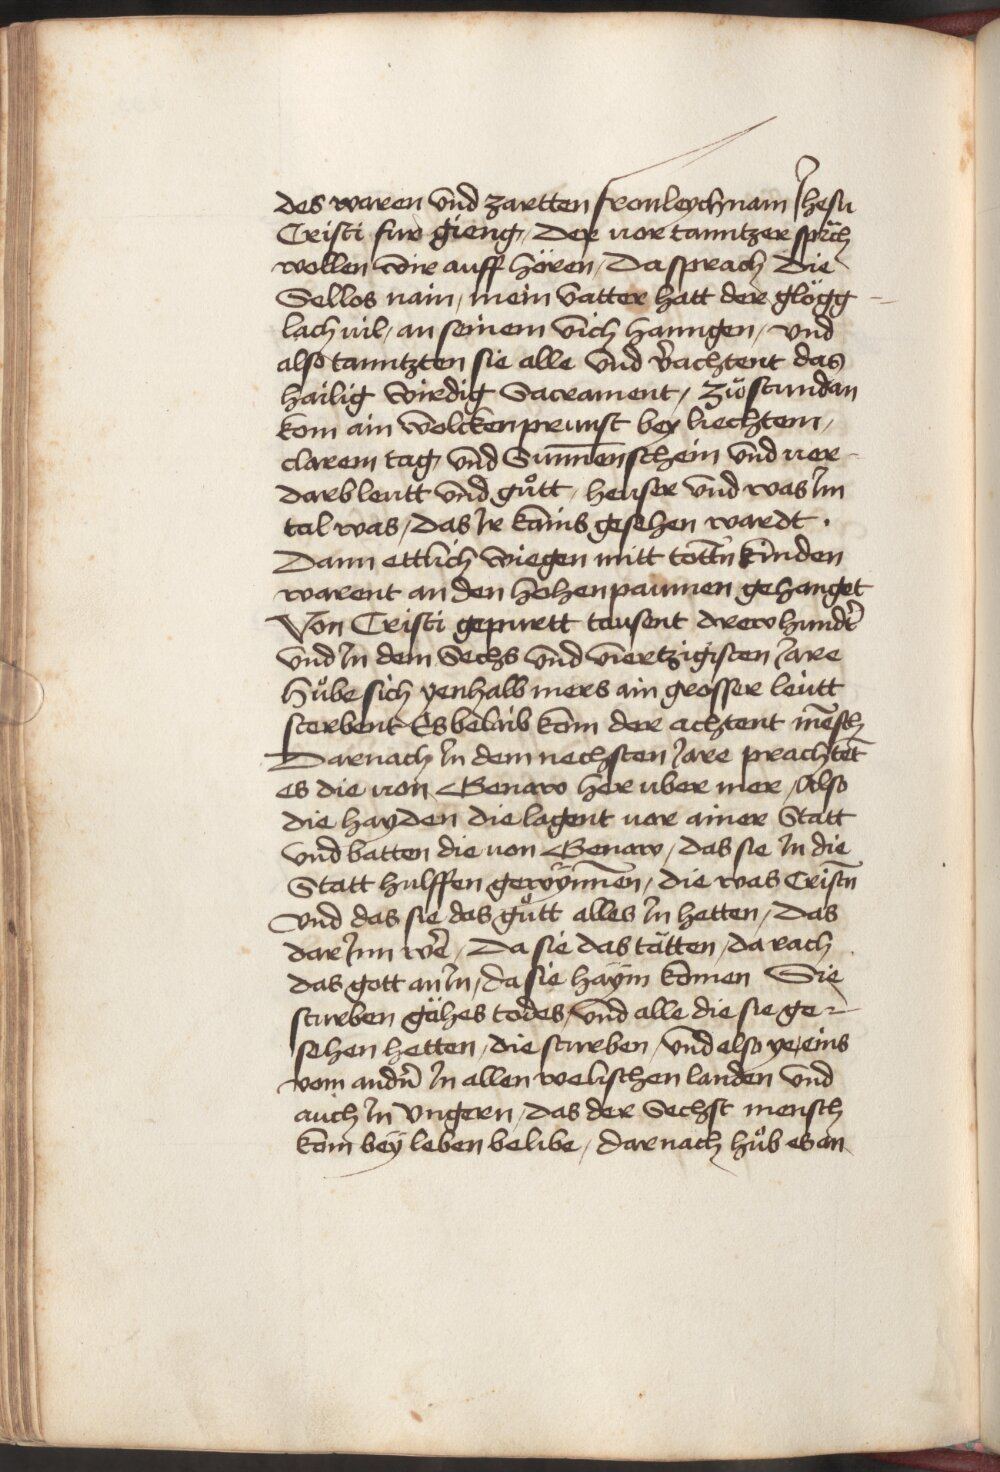 des waren vnd zartten fronleychnam Jhesu
Cristi fur gieng / Der vor tanntzer sprach
wollen wir auff hören / Da sprach die
Sellos nain / mein vatter hatt der glögg
lach vil / an seinem vich hanngen / vnd
also tanntzten sie alle vnd v̾achtent das
hailig wirdig Sacrament / zůstundan
kom ain wolckenprunst bey liechtem /
clarem tag vnd Sunnenschein vnd ver
darb leutt vnd gůtt / heuser vnd was Im
tal was / das Ir kains gesehen wardt .
Dann ettlich wiegen mitt tottn̄ kinden
warent an den hohen paumen gehanget
Von Cristi gepurtt tausent drew hundt̾
vnd In dem Sechs vnd viertzigisten Jare
hůbe sich yenhalb mers ain grosser leutt
sterbent Es belaib kom der achtent mēsch
Darnach In dem nechsten Jare prachtet̄
es die von Genaw her vber mer / Also
die hayden die lagent vor ainer Statt
vnd batten die von Genaw / das sie In die
Statt hulffen gewÿnnen / die was Cristn̄
Vnd das sie das gůtt alles In hetten / das
dar Inn wē / Da sie das tätten / da rach
das gott an In / da sie haÿm komen Sie
sturben gähes todes / vnd alle die sie ge
sehen hetten / die sturben / vnd also ye eins
vom andn̄ In allen welischen landen vnd
auch In vngern / das der Sechst mensch
kom beÿ leben belibe / darnach hůb es an